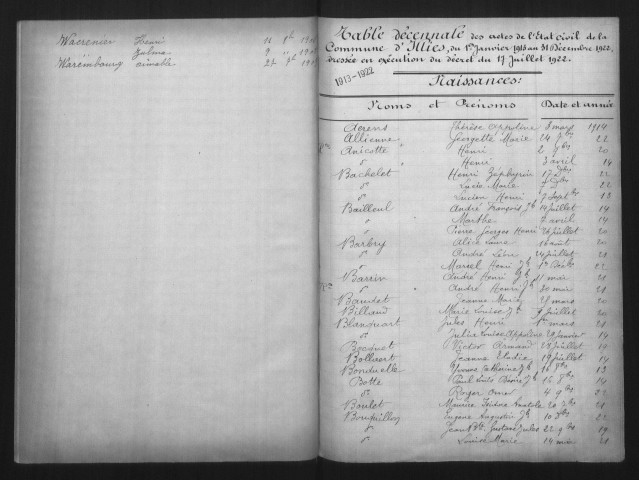 Waerenier Henri 11
Zulma 9
Warembourg aimable 22
Table décennale des actes de l'Etat Civil de la
Commune d'Illies, du 1er Janvier 1913 au 31 Décembre 1922,
dressée en exécution du décret du 17 Juillet 1922.
1913-1922
Naissances:
Noms et Prénoms Date et année
Aerens Thérèse Appoline 8 mars 1914
Allienne Georgette Marie 24 22
Anicotte Henri 2 9bre 20
do Henri 3 avril 14
Bachelet Henri Zéphyrin 17 22
do Lucie Marie 22
do Lucien Henri 9 Septbre 13
Bailleul André François Jh 14 Juillet 14
do Marthe 7 avril 14
do Pierre Georges Henri 26 Juillet 20
Barbry Alice 16 août 20
do André Léon 24 Juillet 20
do Marcel Henri Jh 22
Barrin André Henri Jh mai 20
do André Henri Jh 30 mai 21
Baudet Jeanne Marie 21 mars 20
Billaud Marie Louise Jh Juillet 20
Blanquart Jules Henri mars 21
do Julia Louise Appoline 29 Janvier 14
Bocquet Victor Armand 23 Juillet 14
Bollaert Jeanne Elodie 19 Juillet 14
Bonduelle Yvonne Catherine Jh 16 13
Botte Paul Louis Désiré Jh 15 14
do Roger Omer 4 9bre 22
Boulet Maurice Isidore Anatole 20 21
Boupillon Eugène Augustin Jh 10 22
do Jean Bte Gustave Jules 22 9bre 19
do Louise Marie 14 mai 21